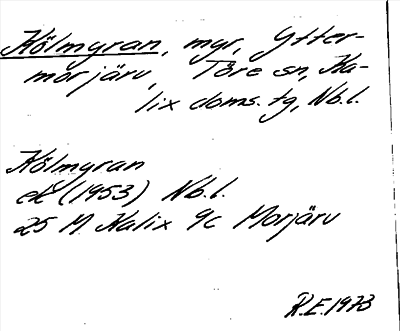 Kölmyran, myr, Ytter-
morjärv, Töre sn, Ka-
lix doms. tg, Nb.l.
Kölmyran
ek (1953) Nb.l.
25 M Kalix 9c Morjärv
R.E. 1973